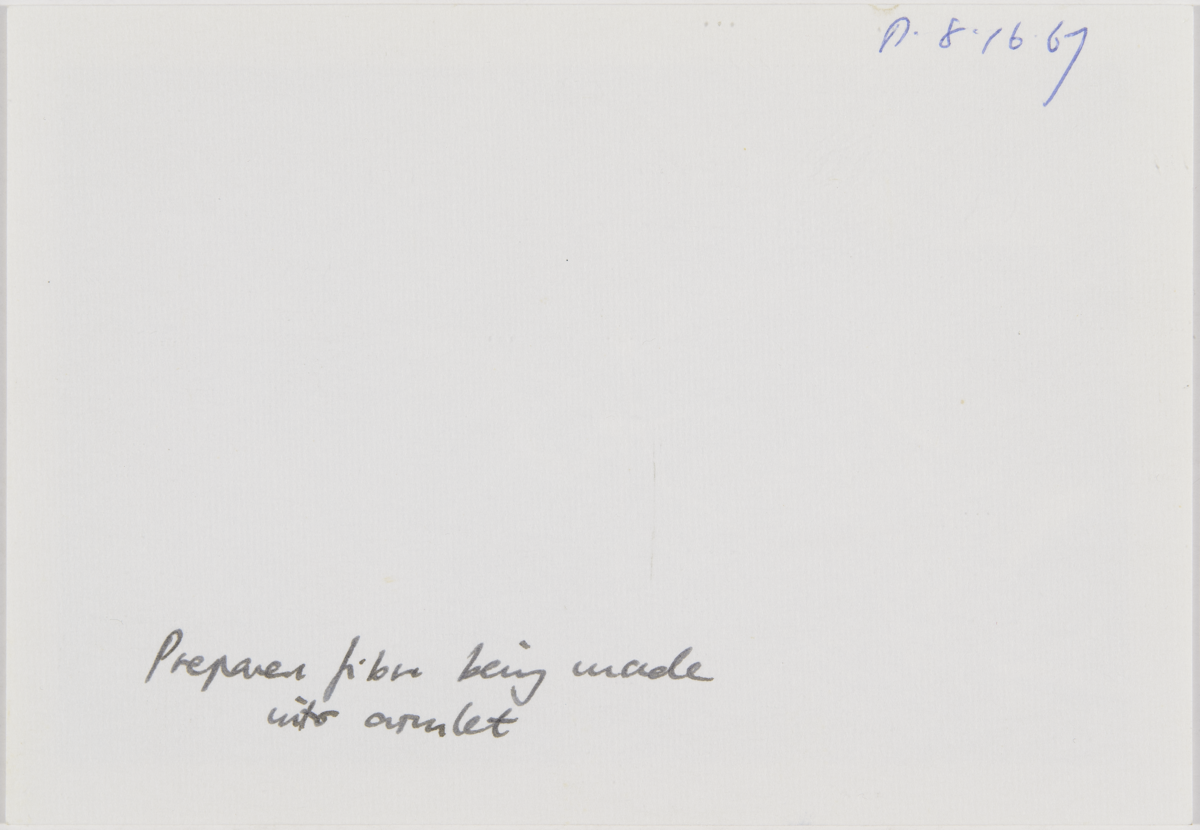 P. 8.16.67
Prepared fibre being made
into armlet